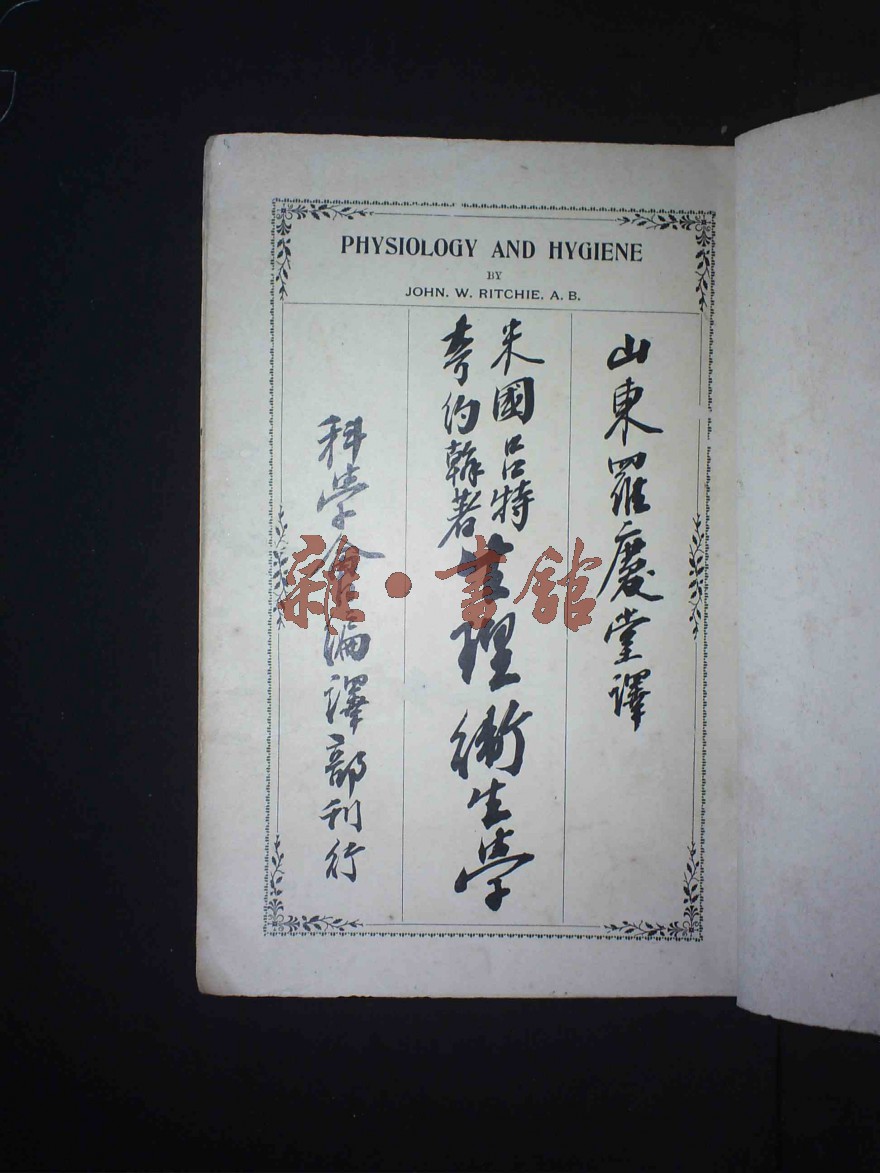 PHYSIOLOGY AND HYGIENE
BY
JOHN. W. RITCHIE. A. B.
山東羅慶堂譯
米國呂特
奇約翰著
生理衛生學
科學會編譯部刊行
雜·書館